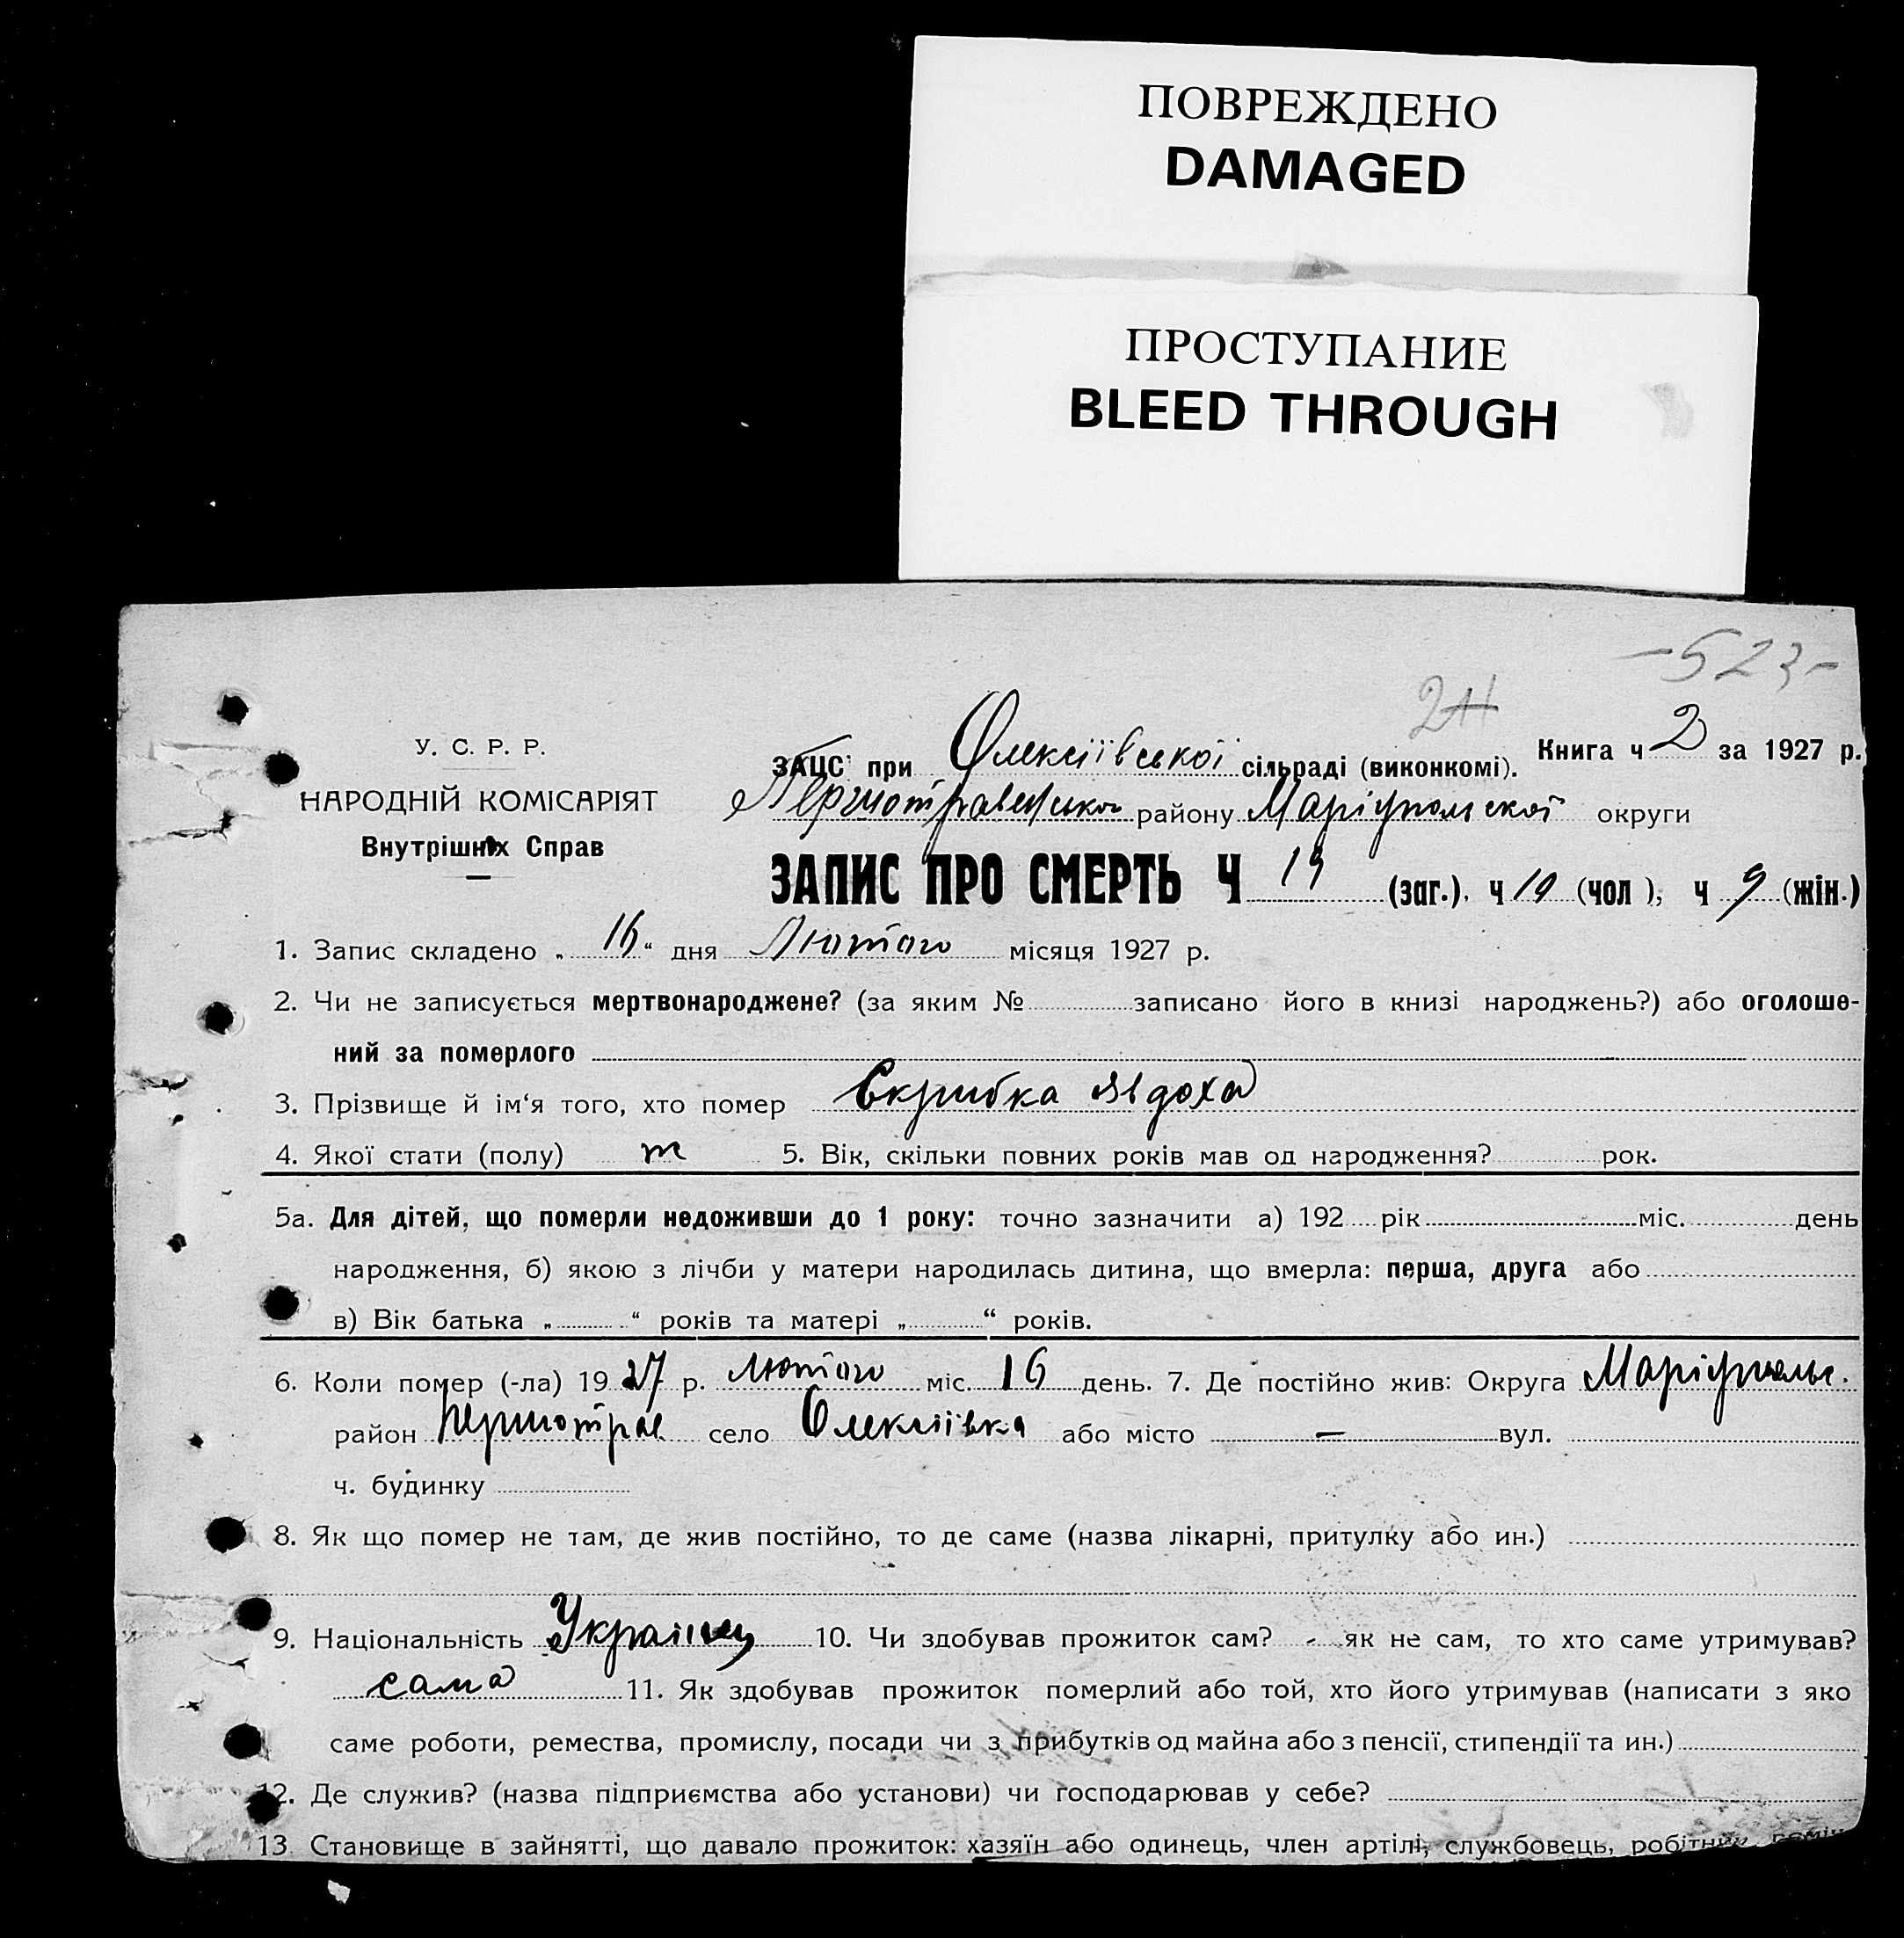 ПОВРЕЖДЕНО
DAMAGED
ПРОСТУПАНИЕ
BLEED THROUGH
-523-
У. С. Р. Р.
НАРОДНІЙ КОМІСАРІЯТ
Внутрішніх Справ
Книга ч 2 за 1927 р.
ЗАЦС при Олексіївської сільраді (виконкомі).
району Маріупольскої округи
ЗАПИС ПРО СМЕРТЬ Ч 19 (заг.). ч 10 (чол ), ч 9 (жін.)
1. Запис складено „ 16 “ дня Лютого місяця 1927 р.
2. Чи не записується мертвонароджене? (за яким № записано його в книзі народжень?) або оголоше-
ний за померлого
3. Прізвище й ім‘я того, хто помер Скрибка Явдоха
4. Якої стати (полу) ж 5. Вік, скільки повних років мав од народження? рок.
5а. Для дітей, що померли недоживши до 1 року: точно зазначити а) 192 рік міс. день
народження, б) якою з лічби у матери народилась дитина, що вмерла: перша, друга або
в) Вік батька „ “ років та матері „ “ років.
6. Коли помер (-ла) 1927 р. лютого міс. 16 день. 7. Де постійно жив: Округа Маріупольс.
район Першотрав. село Олексіївка або місто — вул.
ч. будинку
8. Як що помер не там, де жив постійно, то де саме (назва лікарні, притулку або ин.)
9. Національність Українец 10. Чи здобував прожиток сам? - як не сам, то хто саме утримував?
сама 11. Як здобував прожиток померлий або той, хто його утримував (написати з яко
саме роботи, ремества, промислу, посади чи з прибутків од майна або з пенсії, стипендії та ин.)
12. Де служив? (назва підприємства або установи) чи господарював у себе?
13 Становище в зайнятті, що давало прожиток: хазяїн або одинець, член артілі, службовець, робітник,